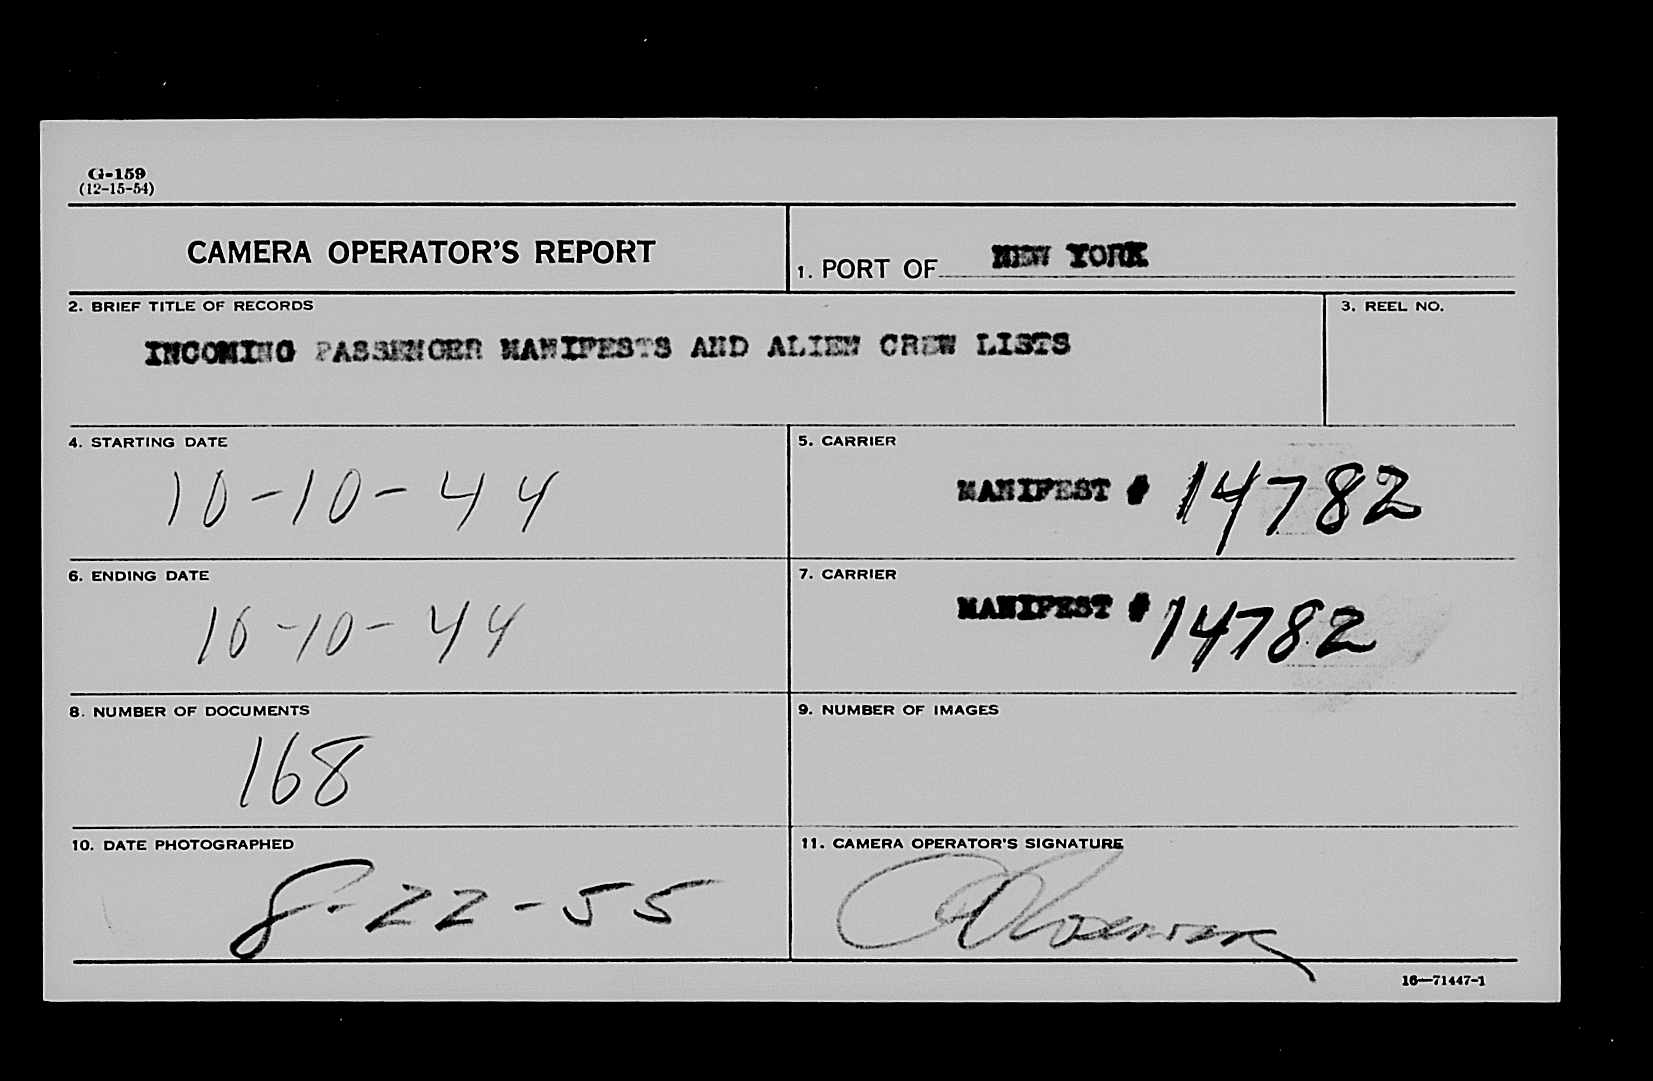 G-159
(12-15-54)
CAMERA OPERATOR'S REPORT
1. PORT OF NEW YORK
2. BRIEF TITLE OF RECORDS
3. REEL NO.
INCOMING PASSENGER MANIFESTS AND ALIEN CREW LISTS
4. STARTING DATE
5. CARRIER
10-10-44
MANIFEST # 14782
6. ENDING DATE
7. CARRIER
10-10-44
MANIFEST # 14782
8. NUMBER OF DOCUMENTS
9. NUMBER OF IMAGES
168
10. DATE PHOTOGRAPHED
11. CAMERA OPERATOR'S SIGNATURE
8-22-55
16—71447-1